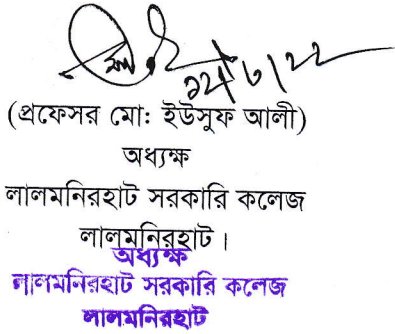 ১২/৬/২২
(প্রফেসর মো: ইউসুফ আলী)
অধ্যক্ষ
লালমনিরহাট সরকারি কলেজ
লালমনিরহাট।
অধ্যক্ষ
লালমনিরহাট সরকারি কলেজ
লালমনিরহাট